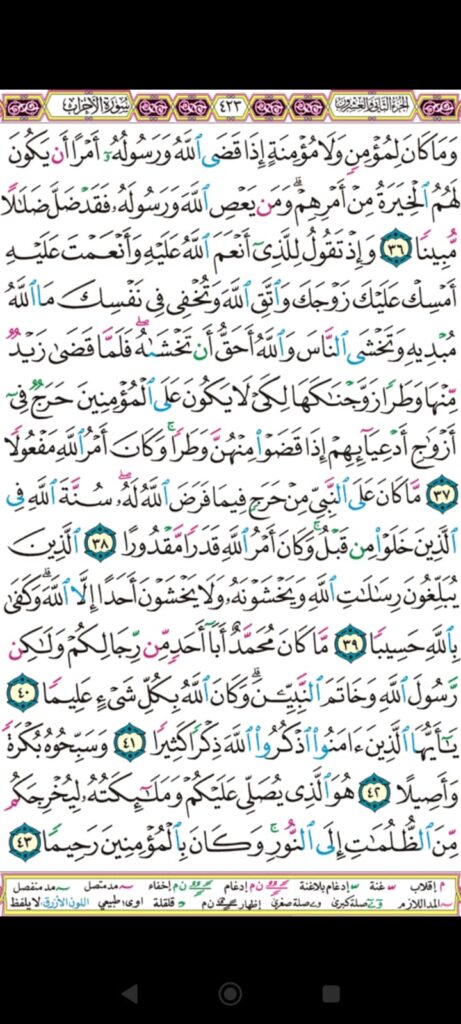 الجزء الثاني والعشرون ٤٢٣ سورة الأحزاب
وَمَا كَانَ لِمُؤْمِنٍ وَلَا مُؤْمِنَةٍ إِذَا قَضَى ٱللَّهُ وَرَسُولُهُۥٓ أَمْرًا أَن يَكُونَ
لَهُمُ ٱلْخِيَرَةُ مِنْ أَمْرِهِمْ ۗ وَمَن يَعْصِ ٱللَّهَ وَرَسُولَهُۥ فَقَدْ ضَلَّ ضَلَٰلًا
مُّبِينًا ٣٦ وَإِذْ تَقُولُ لِلَّذِىٓ أَنْعَمَ ٱللَّهُ عَلَيْهِ وَأَنْعَمْتَ عَلَيْهِ
أَمْسِكْ عَلَيْكَ زَوْجَكَ وَٱتَّقِ ٱللَّهَ وَتُخْفِى فِى نَفْسِكَ مَا ٱللَّهُ
مُبْدِيهِ وَتَخْشَى ٱلنَّاسَ وَٱللَّهُ أَحَقُّ أَن تَخْشَىٰهُ ۖ فَلَمَّا قَضَىٰ زَيْدٌ
مِّنْهَا وَطَرًا زَوَّجْنَٰكَهَا لِكَىْ لَا يَكُونَ عَلَى ٱلْمُؤْمِنِينَ حَرَجٌ فِىٓ
أَزْوَٰجِ أَدْعِيَآئِهِمْ إِذَا قَضَوْا۟ مِنْهُنَّ وَطَرًا ۚ وَكَانَ أَمْرُ ٱللَّهِ مَفْعُولًا
٣٧ مَّا كَانَ عَلَى ٱلنَّبِىِّ مِنْ حَرَجٍ فِيمَا فَرَضَ ٱللَّهُ لَهُۥ ۖ سُنَّةَ ٱللَّهِ فِى
ٱلَّذِينَ خَلَوْا۟ مِن قَبْلُ ۚ وَكَانَ أَمْرُ ٱللَّهِ قَدَرًا مَّقْدُورًا ٣٨ ٱلَّذِينَ
يُبَلِّغُونَ رِسَٰلَٰتِ ٱللَّهِ وَيَخْشَوْنَهُۥ وَلَا يَخْشَوْنَ أَحَدًا إِلَّا ٱللَّهَ ۗ وَكَفَىٰ
بِٱللَّهِ حَسِيبًا ٣٩ مَّا كَانَ مُحَمَّدٌ أَبَآ أَحَدٍ مِّن رِّجَالِكُمْ وَلَٰكِن
رَّسُولَ ٱللَّهِ وَخَاتَمَ ٱلنَّبِيِّـۧنَ ۗ وَكَانَ ٱللَّهُ بِكُلِّ شَىْءٍ عَلِيمًا ٤٠
يَٰٓأَيُّهَا ٱلَّذِينَ ءَامَنُوا۟ ٱذْكُرُوا۟ ٱللَّهَ ذِكْرًا كَثِيرًا ٤١ وَسَبِّحُوهُ بُكْرَةً
وَأَصِيلًا ٤٢ هُوَ ٱلَّذِى يُصَلِّى عَلَيْكُمْ وَمَلَٰٓئِكَتُهُۥ لِيُخْرِجَكُم
مِّنَ ٱلظُّلُمَٰتِ إِلَى ٱلنُّورِ ۚ وَكَانَ بِٱلْمُؤْمِنِينَ رَحِيمًا ٤٣
م إقلاب غنة إدغام بلاغنة ن م إدغام ن م إخفاء مد متصل مد منفصل
المد اللازم صلة كبرى صلة صغرى إظهار ن م قلقلة اوى: طبيعي اللون الأزرق: لا يلفظ